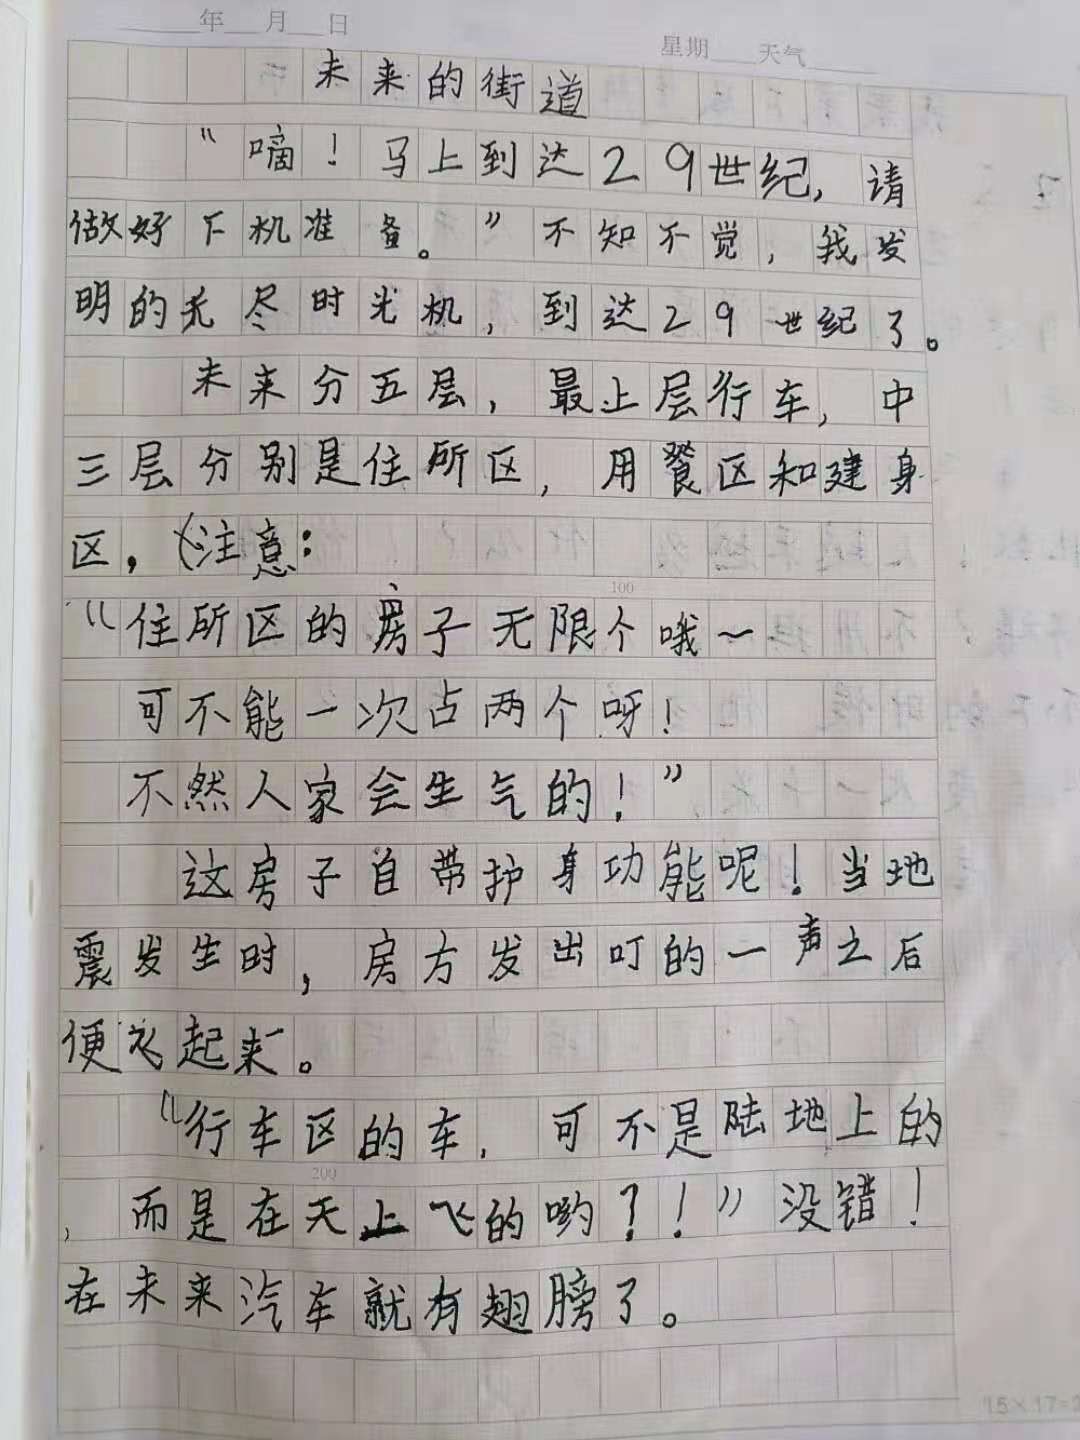 年 月 日
星期 天气
未来的街道
“嘀！马上到达29世纪，请
做好下机准备。”不知不觉，我发
明的无尽时光机，到达29世纪了。
未来分五层，最上层行车，中
三层分别是住所区，用餐区和建身
区，（注意：
100
“住所区的房子无限个哦～
可不能一次占两个呀！
不然人家会生气的！”
这房子自带护身功能呢！当地
震发生时，房方发出叮的一声之后
便飞起来。
“行车区的车，可不是陆地上的
200
，而是在天上飞的哟？！”没错！
在未来汽车就有翅膀了。